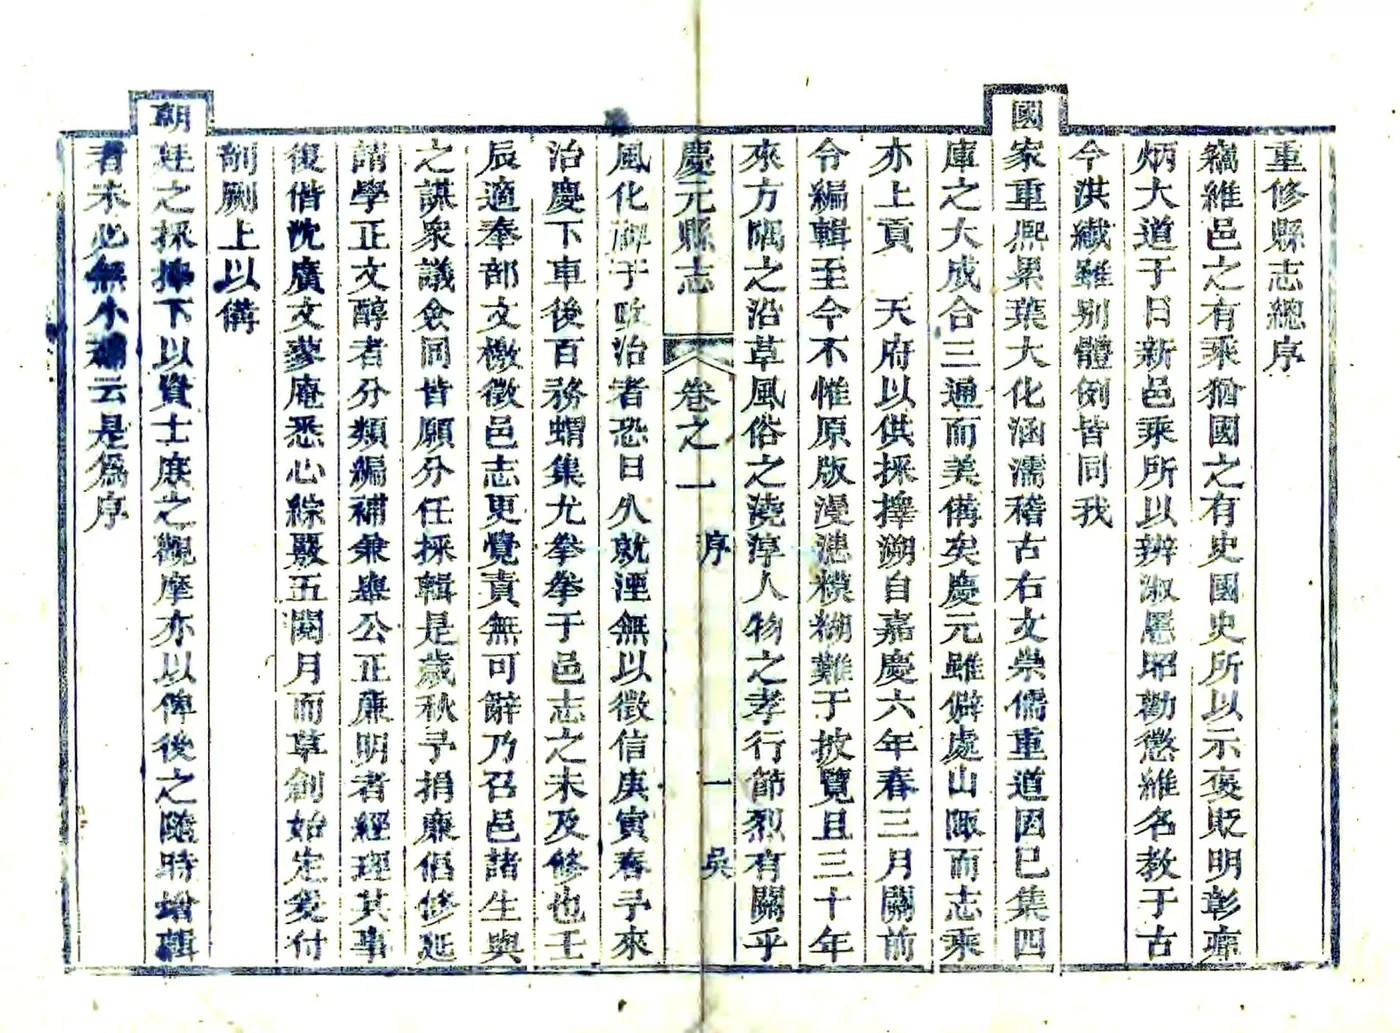 重修縣志總序
竊維邑之有乘猶國之有史國史所以示褒貶明彰癉
炳大道于日新邑乘所以辨淑慝昭勸懲維名教于古
今洪纖雖别體例皆同我
國家重熙累葉大化涵濡稽古右文崇儒重道因已集四
庫之大成合三通而美備矣慶元雖僻處山陬而志乘
亦上貢　天府以供採擇溯自嘉慶六年春三月關前
令編輯至今不惟原版漫漶糢糊難于披覽且三十年
來方隅之沿革風俗之澆淳人物之孝行節烈有關乎
慶元縣志　卷之一　序　一　吳
風化澤于政治者恐日久就湮無以徵信庚寅春予來
治慶下車後百務蝟集尤拳拳于邑志之未及修也壬
辰適奉部文檄徵邑志更覺責無可辭乃召邑諸生與
之謀衆議僉同皆願分任採輯是歲秋予捐廉倡修延
請學正文醇者分類編補兼舉公正廉明者經理其事
復偕沈廣文夢庵悉心綜覈五閱月而草創始定爰付
剞劂上以備
朝廷之採擇下以資士庶之觀摩亦以俾後之隨時增輯
者未必無小補云是爲序